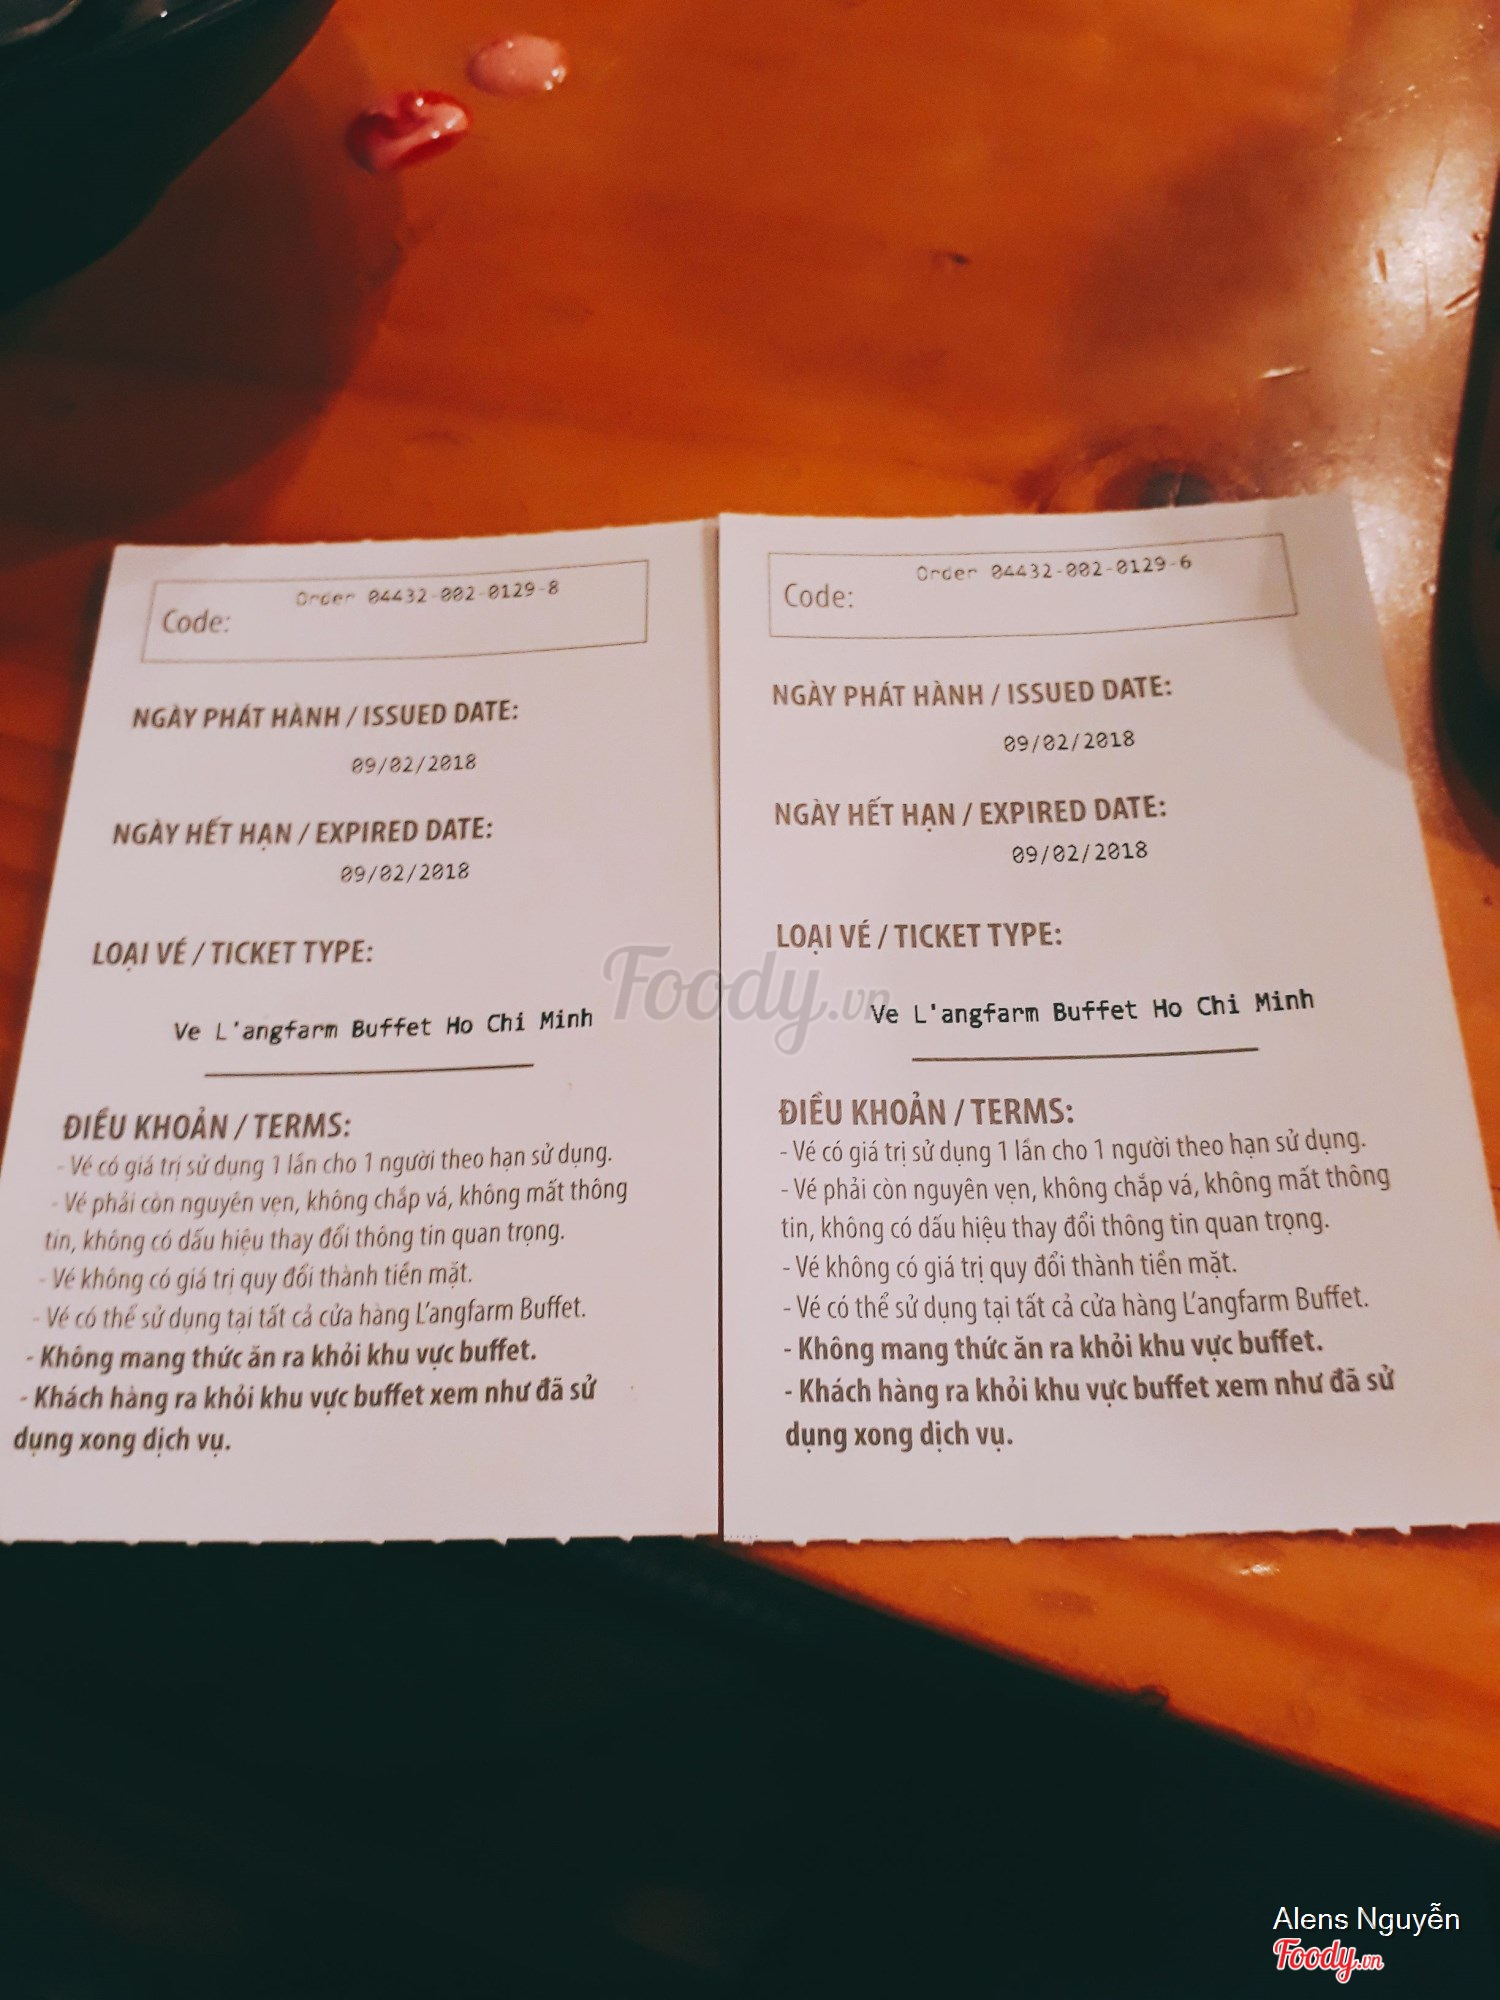 Order 04432-002-0129-8
Code:
NGÀY PHÁT HÀNH / ISSUED DATE:
09/02/2018
NGÀY HẾT HẠN / EXPIRED DATE:
09/02/2018
LOẠI VÉ / TICKET TYPE:
Ve L'angfarm Buffet Ho Chi Minh
ĐIỀU KHOẢN / TERMS:
- Vé có giá trị sử dụng 1 lần cho 1 người theo hạn sử dụng.
- Vé phải còn nguyên vẹn, không chắp vá, không mất thông
tin, không có dấu hiệu thay đổi thông tin quan trọng.
- Vé không có giá trị quy đổi thành tiền mặt.
- Vé có thể sử dụng tại tất cả cửa hàng L'angfarm Buffet.
- Không mang thức ăn ra khỏi khu vực buffet.
- Khách hàng ra khỏi khu vực buffet xem như đã sử
dụng xong dịch vụ.
Order 04432-002-0129-6
Code:
NGÀY PHÁT HÀNH / ISSUED DATE:
09/02/2018
NGÀY HẾT HẠN / EXPIRED DATE:
09/02/2018
LOẠI VÉ / TICKET TYPE:
Ve L'angfarm Buffet Ho Chi Minh
ĐIỀU KHOẢN / TERMS:
- Vé có giá trị sử dụng 1 lần cho 1 người theo hạn sử dụng.
- Vé phải còn nguyên vẹn, không chắp vá, không mất thông
tin, không có dấu hiệu thay đổi thông tin quan trọng.
- Vé không có giá trị quy đổi thành tiền mặt.
- Vé có thể sử dụng tại tất cả cửa hàng L'angfarm Buffet.
- Không mang thức ăn ra khỏi khu vực buffet.
- Khách hàng ra khỏi khu vực buffet xem như đã sử
dụng xong dịch vụ.
Foody.vn
Alens Nguyễn
Foody.vn